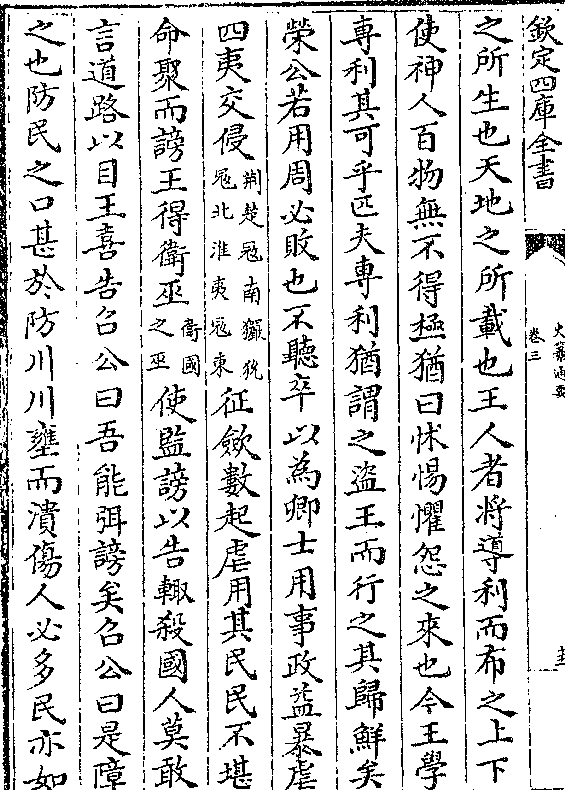 欽定四庫全書
卷三
之所生也天地之所載也王人者將導利而布之上下
使神人百物無不得極猶曰怵惕懼怨之來也今王學
専利其可乎匹夫専利猶謂之盜王而行之其歸鮮矣
榮公若用周必敗也不聽卒以為卿士用事政益暴虐
四夷交侵荆楚冦南玁狁冦北淮夷冦東征歛數起虐用其民民不堪
命聚而謗王得衛巫衛國之巫使監謗以告輙殺國人莫敢
言道路以目王喜告召公曰吾能弭謗矣召公曰是障
之也防民之口甚於防川川壅而潰傷人必多民亦如